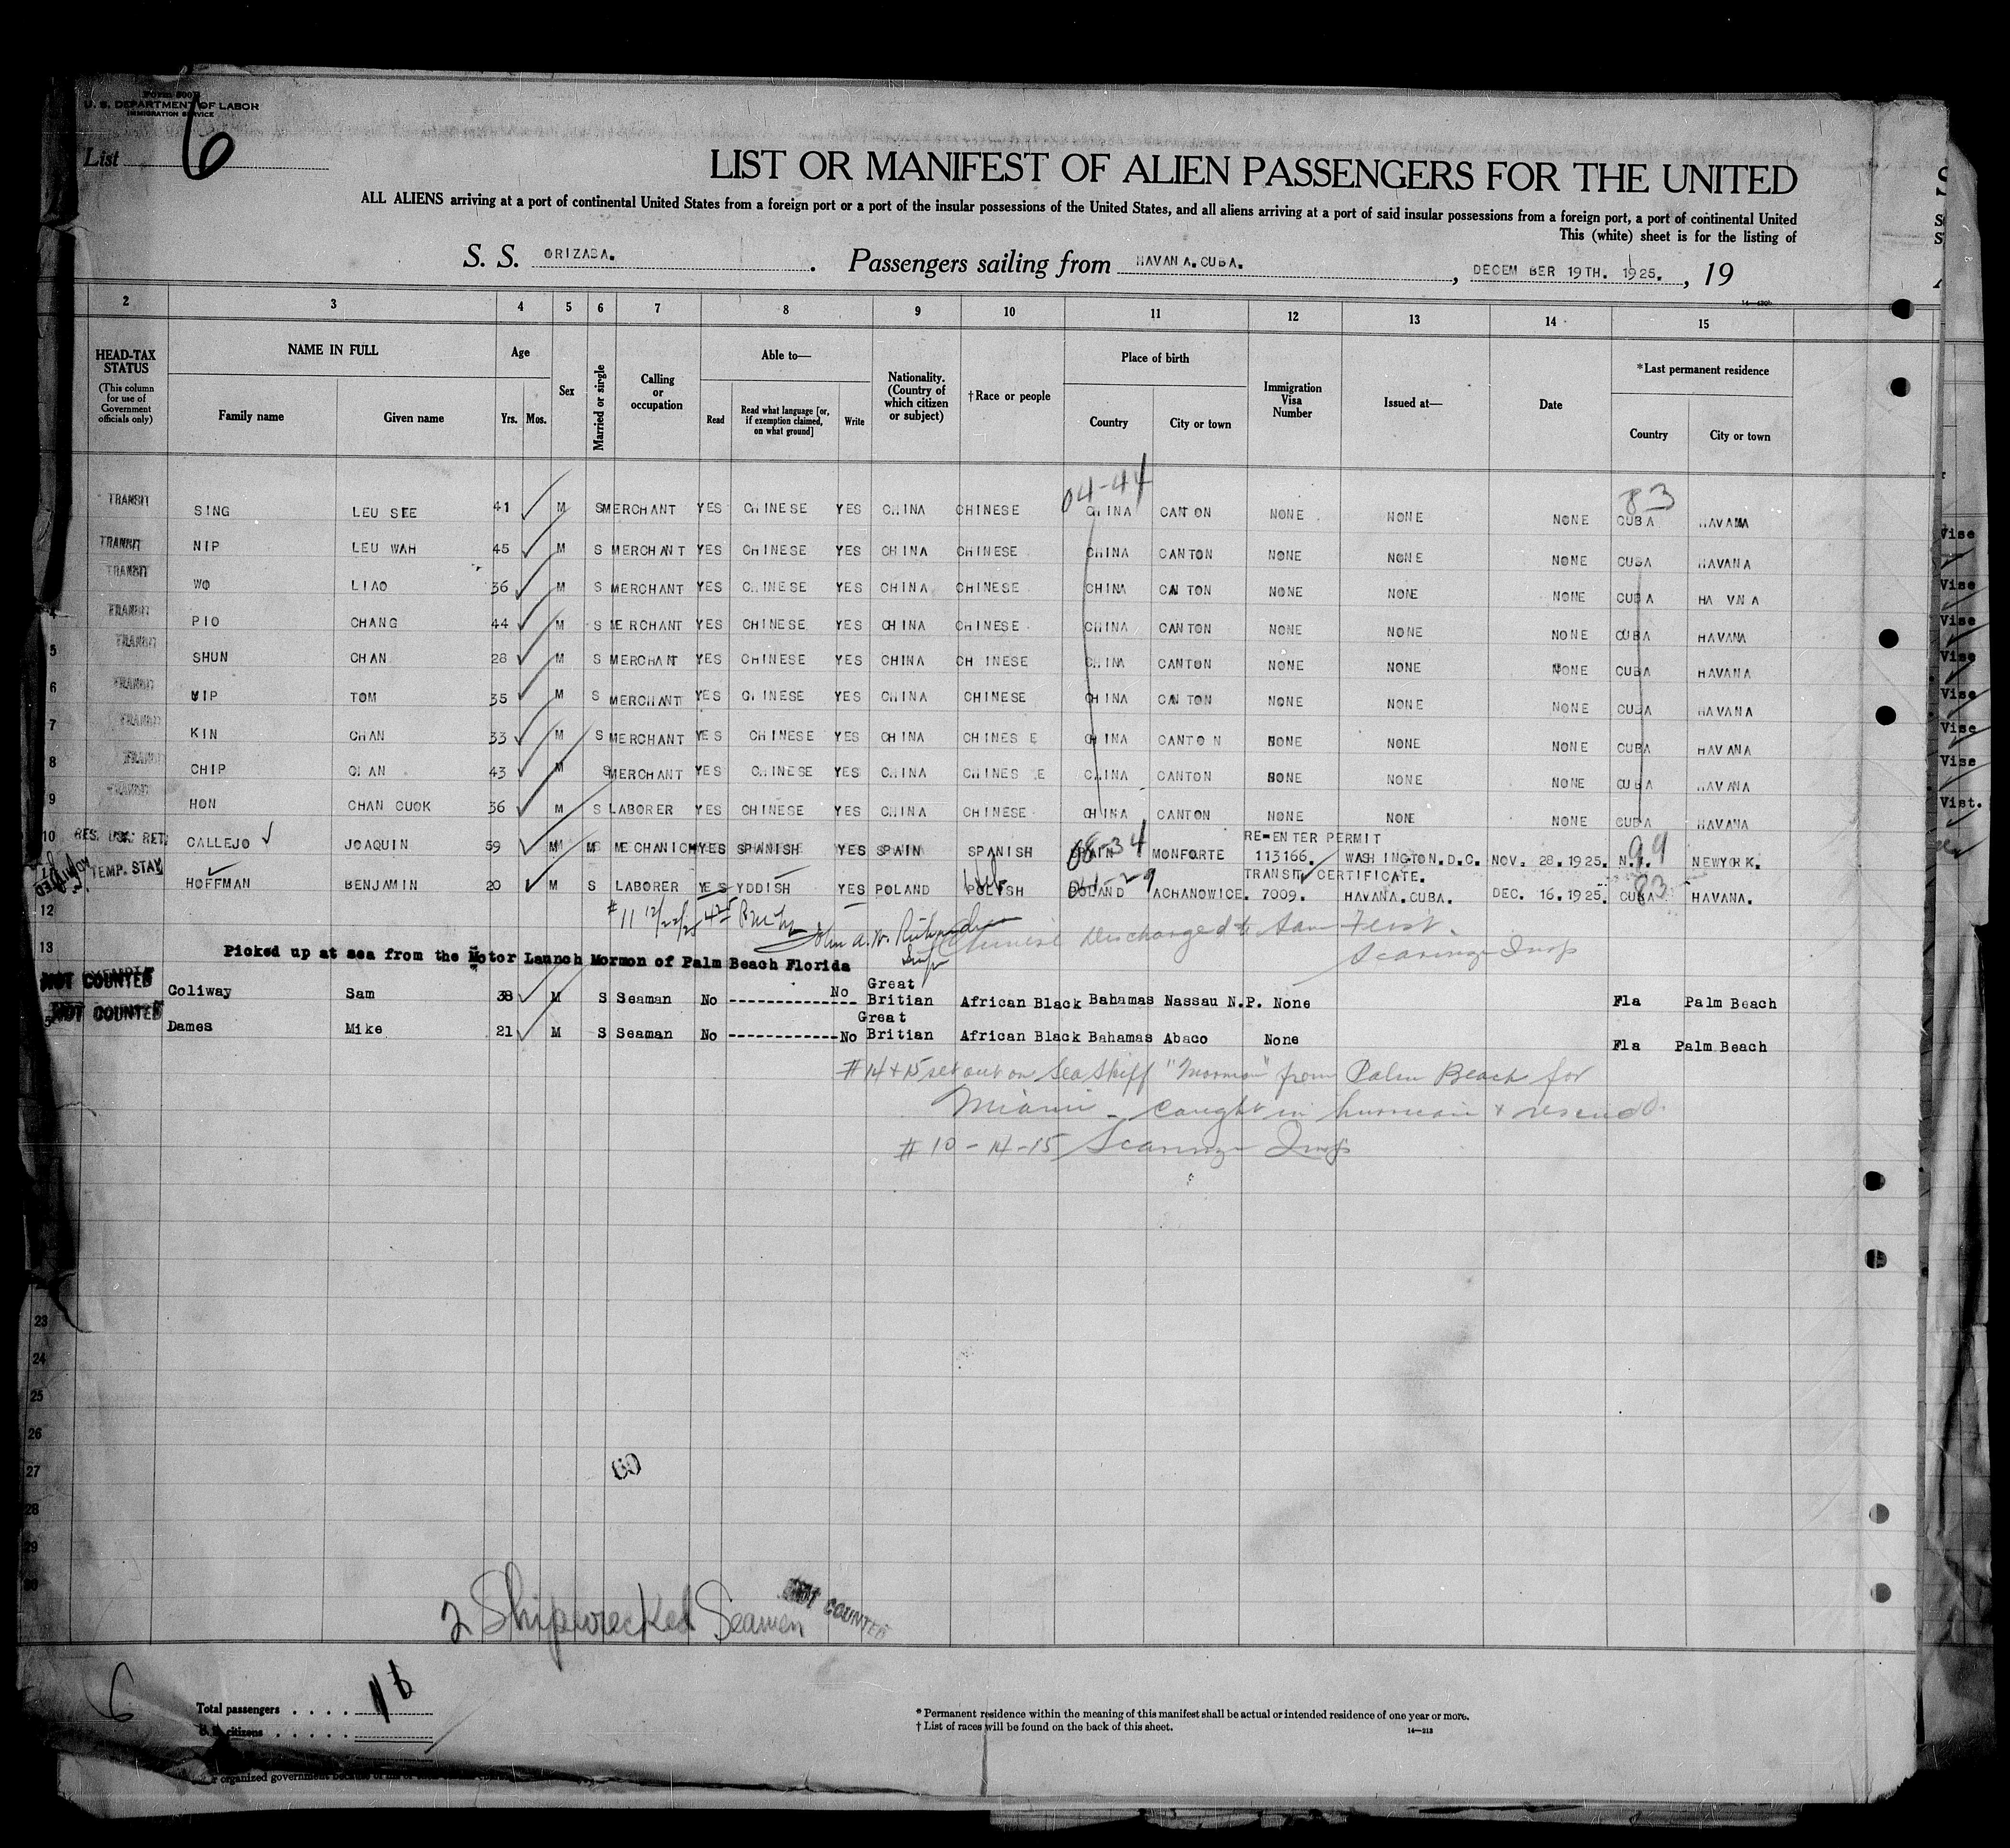 U. S. DEPARTMENT OF LABOR
IMMIGRATION SERVICE
List 6
LIST OR MANIFEST OF ALIEN PASSENGERS FOR THE UNITED
ALL ALIENS arriving at a port of continental United States from a foreign port or a port of the insular possessions of the United States, and all aliens arriving at a port of said insular possessions from a foreign port, a port of continental United
This (white) sheet is for the listing of
S. S. ORIZABA. Passengers sailing from HAVANA.CUBA., DECEMBER 19TH. 1925., 19
2 3 4 5 6 7 8 9 10 11 12 13 14 15
HEAD-TAX STATUS (This column for use of Government officials only) NAME IN FULL Family name Given name Age Yrs. Mos. Sex Married or single Calling or occupation Able to— Read Read what language [or, if exemption claimed, on what ground] Write Nationality. (Country of which citizen or subject) †Race or people Place of birth Country City or town Immigration Visa Number Issued at— Date *Last permanent residence Country City or town
04-44 83
TRANSIT SING LEU SEE 41 M S MERCHANT YES CHINESE YES CHINA CHINESE CHINA CANTON NONE NONE NONE CUBA HAVANA
TRANSIT NIP LEU WAH 45 M S MERCHANT YES CHINESE YES CHINA CHINESE CHINA CANTON NONE NONE NONE CUBA HAVANA Vise
TRANSIT WO LIAO 36 M S MERCHANT YES CHINESE YES CHINA CHINESE CHINA CANTON NONE NONE NONE CUBA HAVNA Vise
4 TRANSIT PIO CHANG 44 M S MERCHANT YES CHINESE YES CHINA CHINESE CHINA CANTON NONE NONE NONE CUBA HAVANA Vise
5 TRANSIT SHUN CHAN 28 M S MERCHANT YES CHINESE YES CHINA CHINESE CHINA CANTON NONE NONE NONE CUBA HAVANA Vise
6 TRANSIT TOM 35 M S MERCHANT YES CHINESE YES CHINA CHINESE CHINA CANTON NONE NONE NONE CUBA HAVANA Vise
7 TRANSIT KIN CHAN 33 M S MERCHANT YES CHINESE YES CHINA CHINESE CHINA CANTON NONE NONE NONE CUBA HAVANA Vise
8 TRANSIT CHIP CHAN 43 M S MERCHANT YES CHINESE YES CHINA CHINESE CHINA CANTON NONE NONE NONE CUBA HAVANA Vise
9 TRANSIT HON CHAN CUOK 36 M S LABORER YES CHINESE YES CHINA CHINESE CHINA CANTON NONE NONE NONE CUBA HAVANA Vist.
RE-ENTER PERMIT
10 CALLEJO JOAQUIN 59 M M MECHANIC YES SPANISH YES SPAIN SPANISH SPAIN 08-34 MONFORTE 113166. WASHINGTON.D.C. NOV. 28.1925. N.Y. 99 NEWYORK.
TRANSIT CERTIFICATE.
TEMP. STAY HOFFMAN BENJAMIN 20 M S LABORER YES YDDISH YES POLAND POLISH POLAND ACHANOWICE. 7009. HAVANA.CUBA. DEC. 16.1925. CUBA 83 HAVANA.
12 #11 12/22/25
Chinese Discharged to Sam
13 Picked up at sea from the Motor Launch Mormon of Palm Beach Florida
NOT COUNTED Coliway Sam 38 M S Seaman No -------------- No Great Britian African Black Bahamas Nassau N.P. None Fla Palm Beach
NOT COUNTED Dames Mike 21 M S Seaman No ------------No Great Britian African Black Bahamas Abaco None Fla Palm Beach
#14 + 15 set out on Sea Skiff "Mormon" from Palm Beach for
Miami - caught in + rescued.
#10 - 14 - 15
23
24
25
26
27
28
29
30
2 Shipwrecked Seamen NOT COUNTED
6
Total passengers . . . .
U. S. citizens . . . . .
* Permanent residence within the meaning of this manifest shall be actual or intended residence of one year or more.
† List of races will be found on the back of this sheet.
14—213